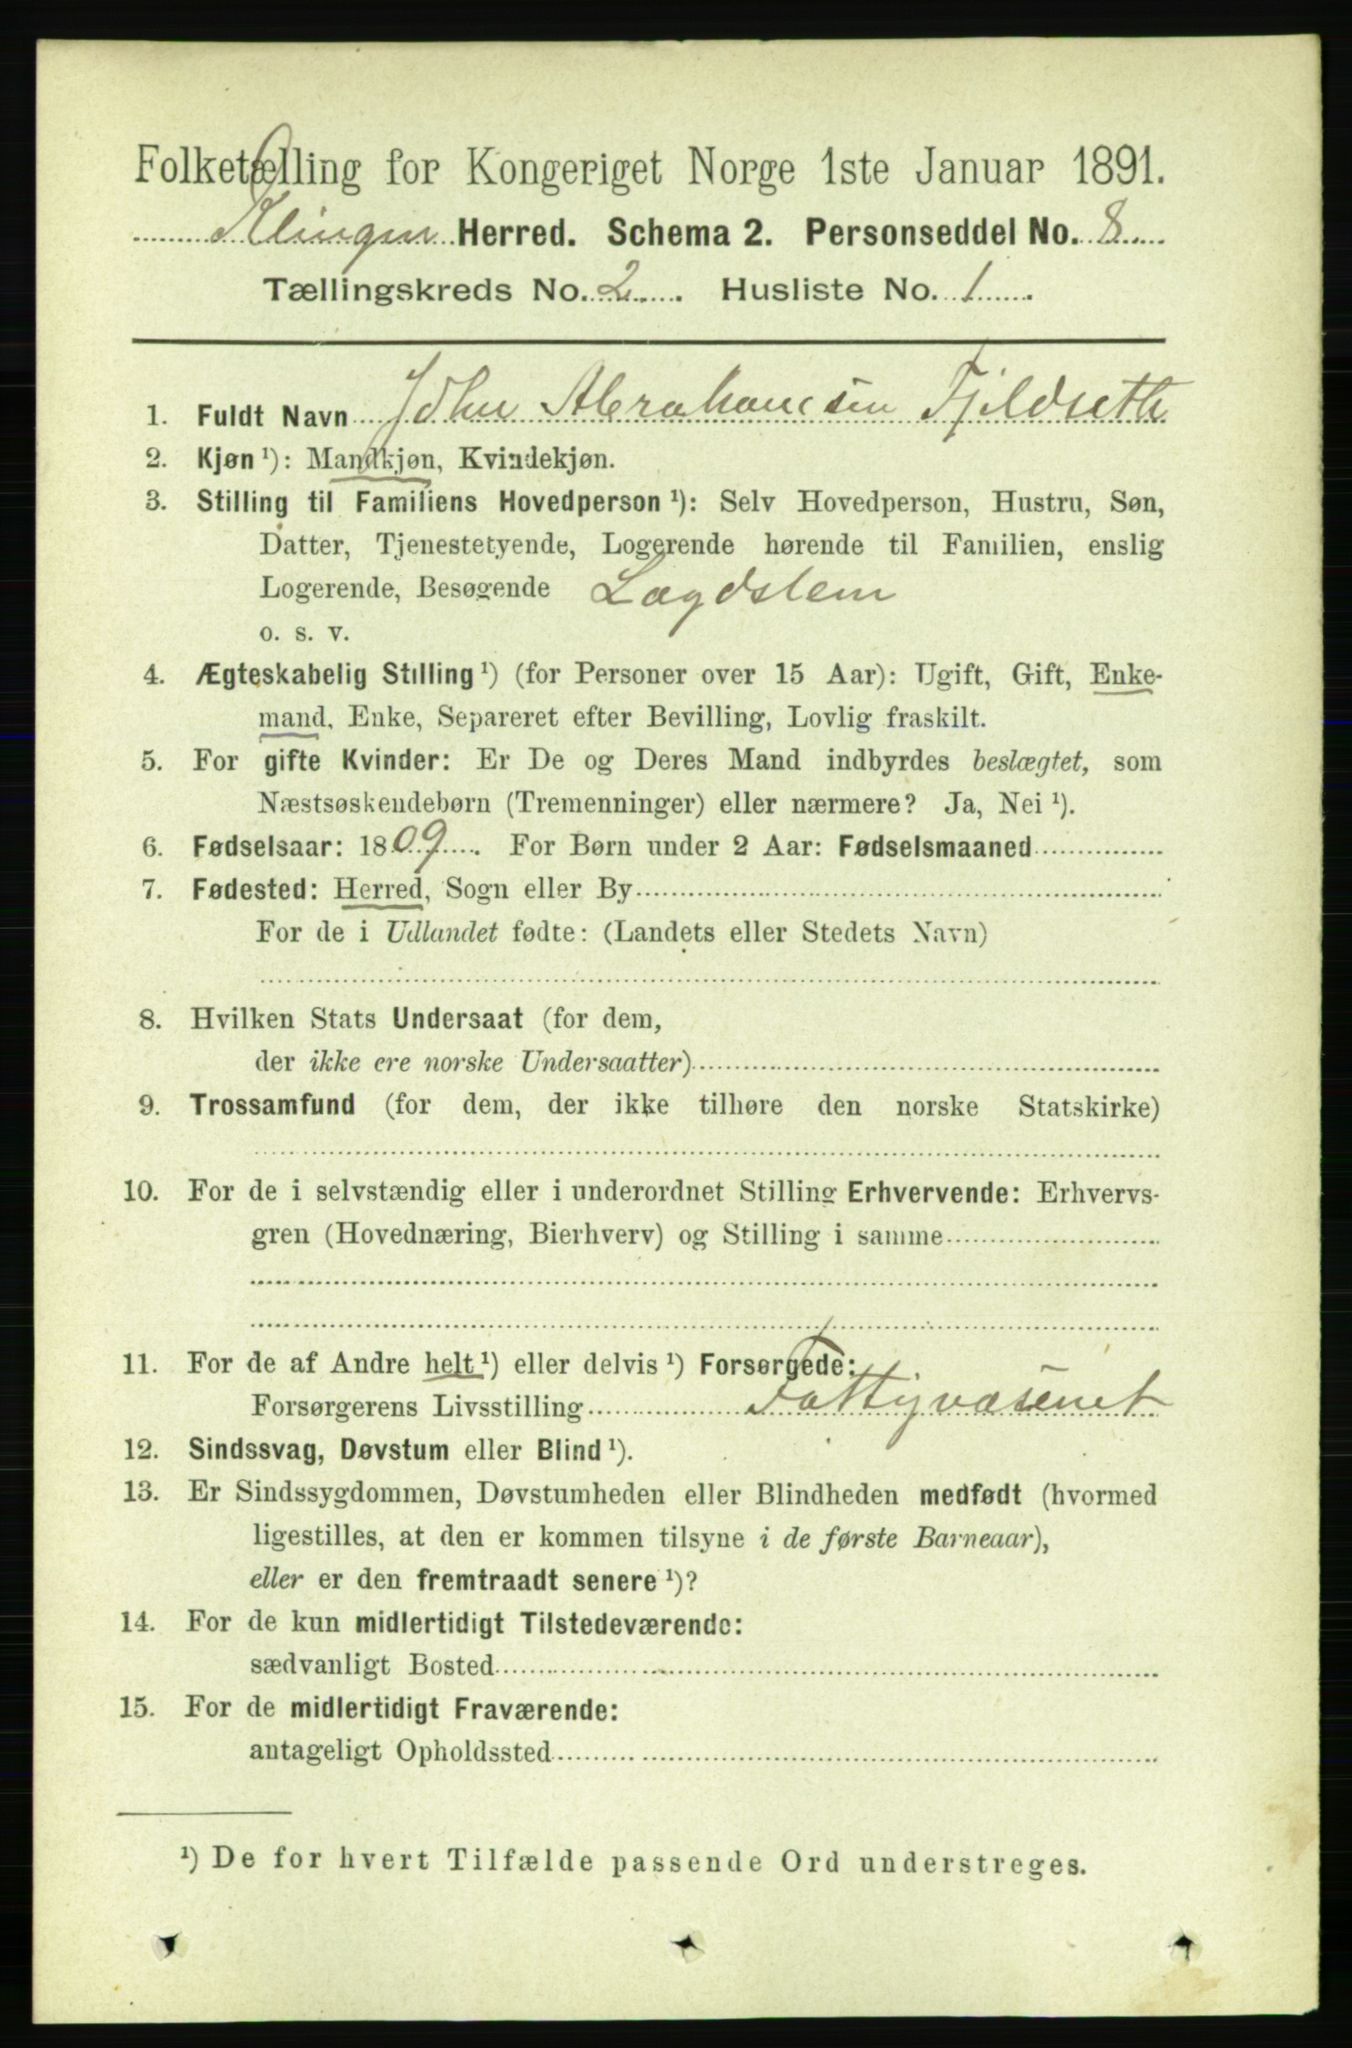 Folketælling for Kongeriget Norge 1ste Januar 1891.
Klingen Herred. Schema 2. Personseddel No. 8
Tællingskreds No. 2. Husliste No. 1.
1. Fuldt Navn John Abrahamsen Fjeldseth
2. Kjøn ¹): Mandkjøn, Kvindekjøn.
3. Stilling til Familiens Hovedperson ¹): Selv Hovedperson, Hustru, Søn,
Datter, Tjenestetyende, Logerende hørende til Familien, enslig
Logerende, Besøgende Lægdslem
o. s. v.
4. Ægteskabelig Stilling ¹) (for Personer over 15 Aar): Ugift, Gift, Enke-
mand, Enke, Separeret efter Bevilling, Lovlig fraskilt.
5. For gifte Kvinder: Er De og Deres Mand indbyrdes beslægtet, som
Næstsøskendebørn (Tremenninger) eller nærmere? Ja, Nei ¹).
6. Fødselsaar: 1809. For Børn under 2 Aar: Fødselsmaaned
7. Fødested: Herred, Sogn eller By
For de i Udlandet fødte: (Landets eller Stedets Navn)
8. Hvilken Stats Undersaat (for dem,
der ikke ere norske Undersaatter)
9. Trossamfund (for dem, der ikke tilhøre den norske Statskirke)
10. For de i selvstændig eller i underordnet Stilling Erhvervende: Erhvervs-
gren (Hovednæring, Bierhverv) og Stilling i samme
11. For de af Andre helt ¹) eller delvis ¹) Forsørgede:
Forsørgerens Livsstilling Fattigvæsenet
12. Sindssvag, Døvstum eller Blind ¹).
13. Er Sindssygdommen, Døvstumheden eller Blindheden medfødt (hvormed
ligestilles, at den er kommen tilsyne i de første Barneaar),
eller er den fremtraadt senere ¹)?
14. For de kun midlertidigt Tilstedeværende:
sædvanligt Bosted
15. For de midlertidigt Fraværende:
antageligt Opholdssted
¹) De for hvert Tilfælde passende Ord understreges.